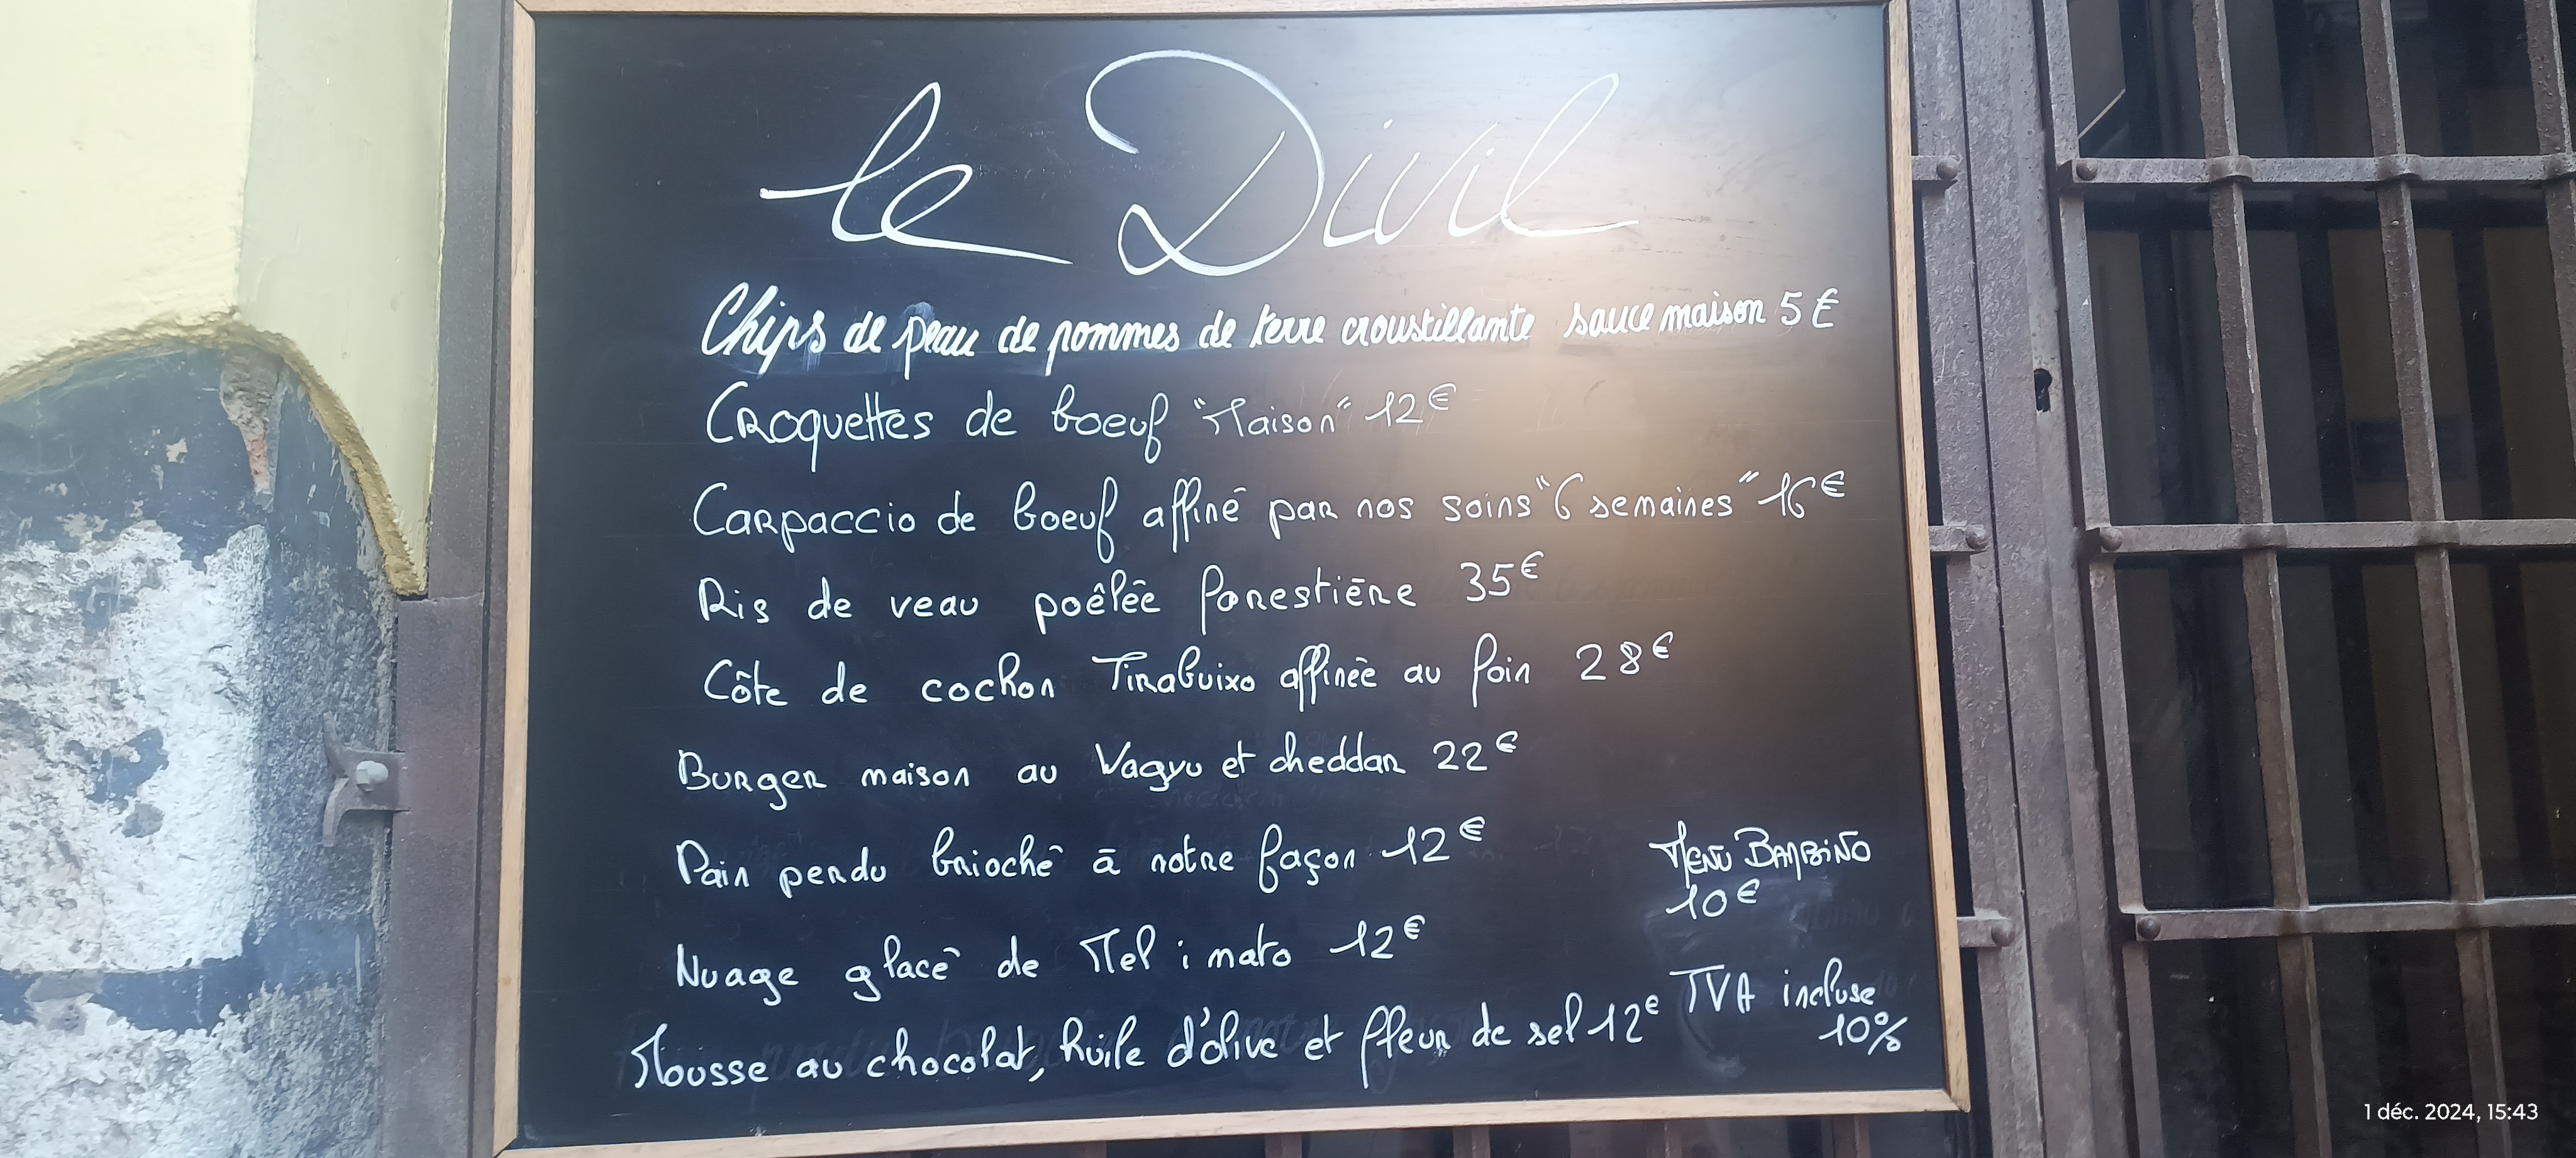 Le Divil
Chips de peau de pommes de terre croustillante sauce maison 5 €
Croquettes de boeuf "Maison" 12€
Carpaccio de boeuf affiné par nos soins "6 semaines" 16€
Ris de veau poêlée forestière 35€
Côte de cochon Tirabuixo affinée au foin 28€
Burger maison au Wagyu et cheddar 22€
Pain perdu brioché à notre façon 12€
Nuage glacé de Mel i mato 12€
Mousse au chocolat, huile d'olive et fleur de sel 12€
MENU BAMBINO
10€
TVA incluse
10%
1 déc. 2024, 15:43